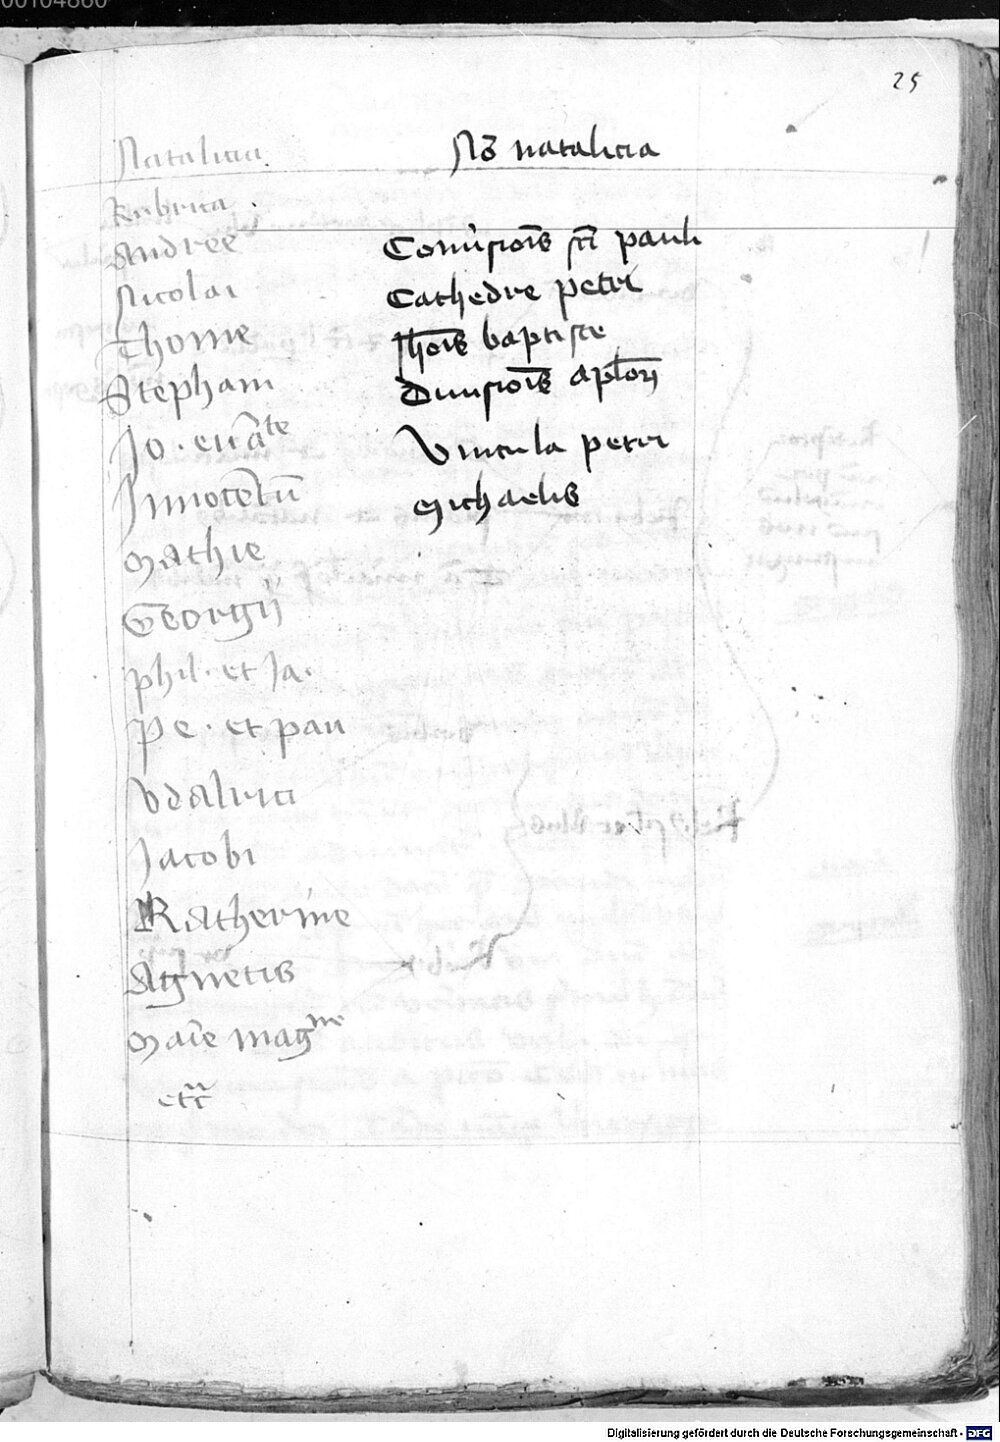 00104860
25
Natalicia
Rubrica
Andree
Nicolai
Thome
Stephani
Jo. eua̅te
Innoce̅tu̅
Mathie
Georgij
phil. et Ja.
Pe. et pau
Vdalrici
Jacobi
Katherine
Agnetis
Mar̅ie mag^ne
etc̅
No̅ natalicia
Conu̅sio̅is sc̅i pauli
Cathedre petri
Joh̅is baptiste
Diuisio̅is ap̅lor̅
Vincula petri
Michaelis
Digitalisierung gefördert durch die Deutsche Forschungsgemeinschaft - DFG